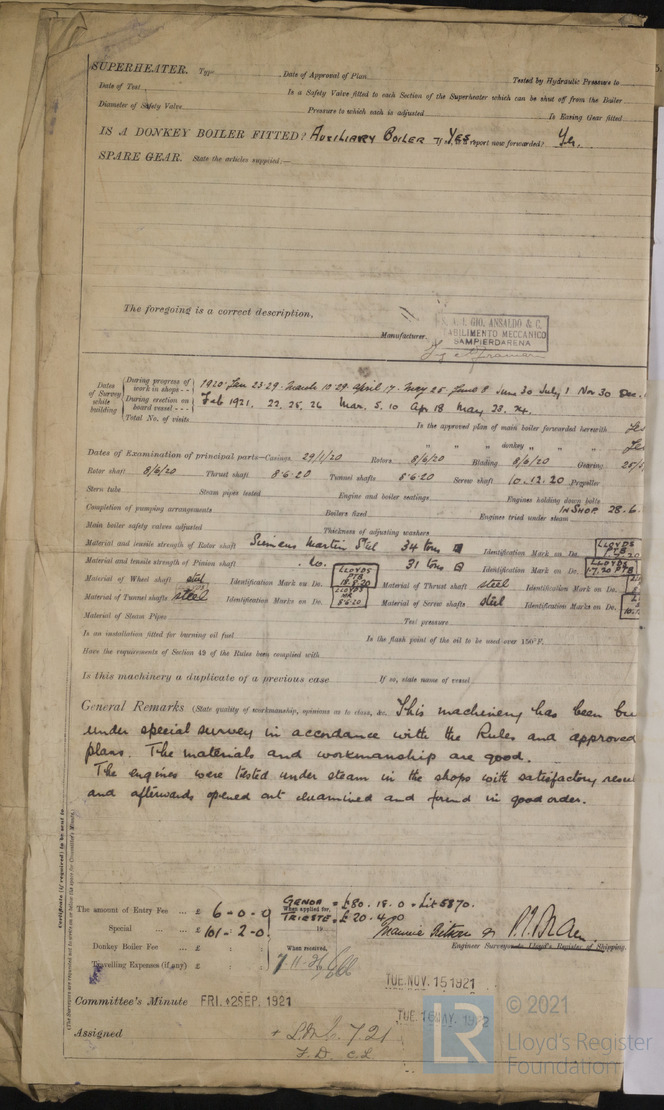 SUPERHEATER. Type Date of Approval of Plan Tested by Hydraulic Pressure to
Date of Test Is a Safety Valve fitted to each Section of the Superheater which can be shut off from the Boiler
Diameter of Safety Valve Pressure to which each is adjusted Is Easing Gear fitted
IS A DONKEY BOILER FITTED? AUXILIARY BOILER YES If so, is a report now forwarded? Yes.
SPARE GEAR. State the articles supplied:—
The foregoing is a correct description,
Manufacturer.
GIO. ANSALDO & C.
STABILIMENTO MECCANICO
SAMPIERDARENA
Dates of Survey while building
During progress of work in shops - - 1920. Jan 23. 29. March 10. 29. April 17. May 25. June 8 June 30 July 1 Nov 30 Dec.
During erection on board vessel - - - Feb 1921. 22. 25. 26 Mar. 5. 10 Apr 18 May 23. 24.
Total No. of visits
Is the approved plan of main boiler forwarded herewith Yes
" " " donkey " " Yes
Dates of Examination of principal parts—Casings 29/1/20 Rotors 8/6/20 Blading 8/6/20 Gearing
Rotor shaft 8/6/20 Thrust shaft 8.6.20 Tunnel shafts 8.6.20 Screw shaft 10.12.20 Propeller
Stern tube Steam pipes tested Engine and boiler seatings Engines holding down bolts
Completion of pumping arrangements Boilers fixed Engines tried under steam IN SHOP 28.6.
Main boiler safety valves adjusted Thickness of adjusting washers
Material and tensile strength of Rotor shaft Siemens Martin Steel 34 tons Identification Mark on Do. LLOYDS PTB
Material and tensile strength of Pinion shaft Do. 31 tons Identification Mark on Do. LLOYDS 1.7.20 PTB
Material of Wheel shaft steel Identification Mark on Do. LLOYDS PTB Material of Thrust shaft steel Identification Mark on Do.
Material of Tunnel shafts steel Identification Marks on Do. LLOYDS 8.6.20 Material of Screw shafts steel Identification Marks on Do.
Material of Steam Pipes Test pressure
Is an installation fitted for burning oil fuel Is the flash point of the oil to be used over 150°F.
Have the requirements of Section 49 of the Rules been complied with
Is this machinery a duplicate of a previous case If so, state name of vessel
General Remarks (State quality of workmanship, opinions as to class, &c. This machinery has been bu
under special survey in accordance with the Rules and approved
plans. The materials and workmanship are good.
The engines were tested under steam in the shops with satisfactory resu
and afterwards opened out examined and found in good order.
Certificate (if required) to be sent to
(The Surveyors are requested not to write on or below the space for Committee's Minute.)
The amount of Entry Fee ... £ 6 - 0 - 0 When applied for, GENOA = £80. 18. 0 = Lit 5870.
TRIESTE = £20. 4. 0
Special ... ... £ 101 - 2 - 0
Donkey Boiler Fee ... £ : : When received,
Travelling Expenses (if any) £ : :
Engineer Surveyor to Lloyd's Register of Shipping.
TUE. NOV. 15 1921
Committee's Minute FRI. 2 SEP. 1921
TUE. 16 MAY. 1922
Assigned + L.M.C. 7.21
F.D. C.L.
LR © 2021
Lloyd's Register
Foundation